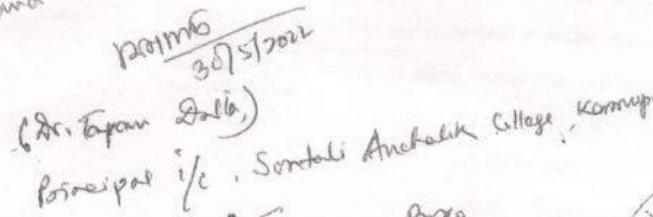 30/5/2022
(Dr. Tapan Dutta,)
Principal i/c, Sontali Anchalik College, Kamrup